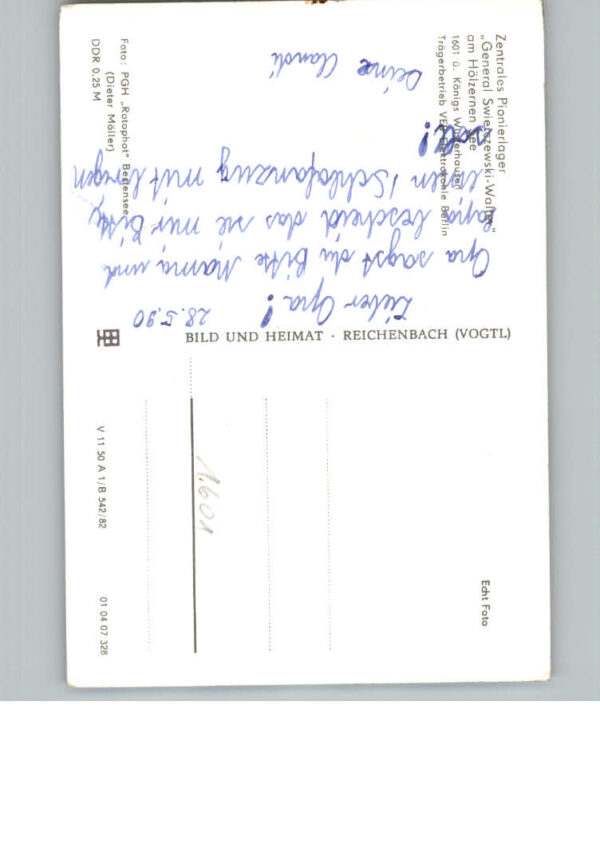 Zentrales Pionierlager
„General Swierczewski-Walter"
am Hölzernen See
1601 ü. Königs Wusterhausen
Trägerbetrieb VEB Elektrokohle Berlin
Foto: PGH „Rotophot" Bestensee
(Dieter Möller)
DDR 0.25 M
28.5.90
Lieber Opa!
Opa sagst du Bitte Mama und
Papa bescheid das sie mir Bitte
einen Schlafanzug mit bringen
Deine
BILD UND HEIMAT · REICHENBACH (VOGTL)
1.601
V 11 50 A 1/B 542/82
01 04 07 328
Echt Foto